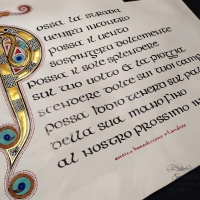 Possa la strada
venirti incontro
possa il vento
sospingerti dolcemente
possa il sole splendere
sul tuo volto e la pioggia
scendere dolce sui tuoi campi
possa Iddio tenerti sul
della sua mano fino
al nostro prossimo
antica benedizione irlandese